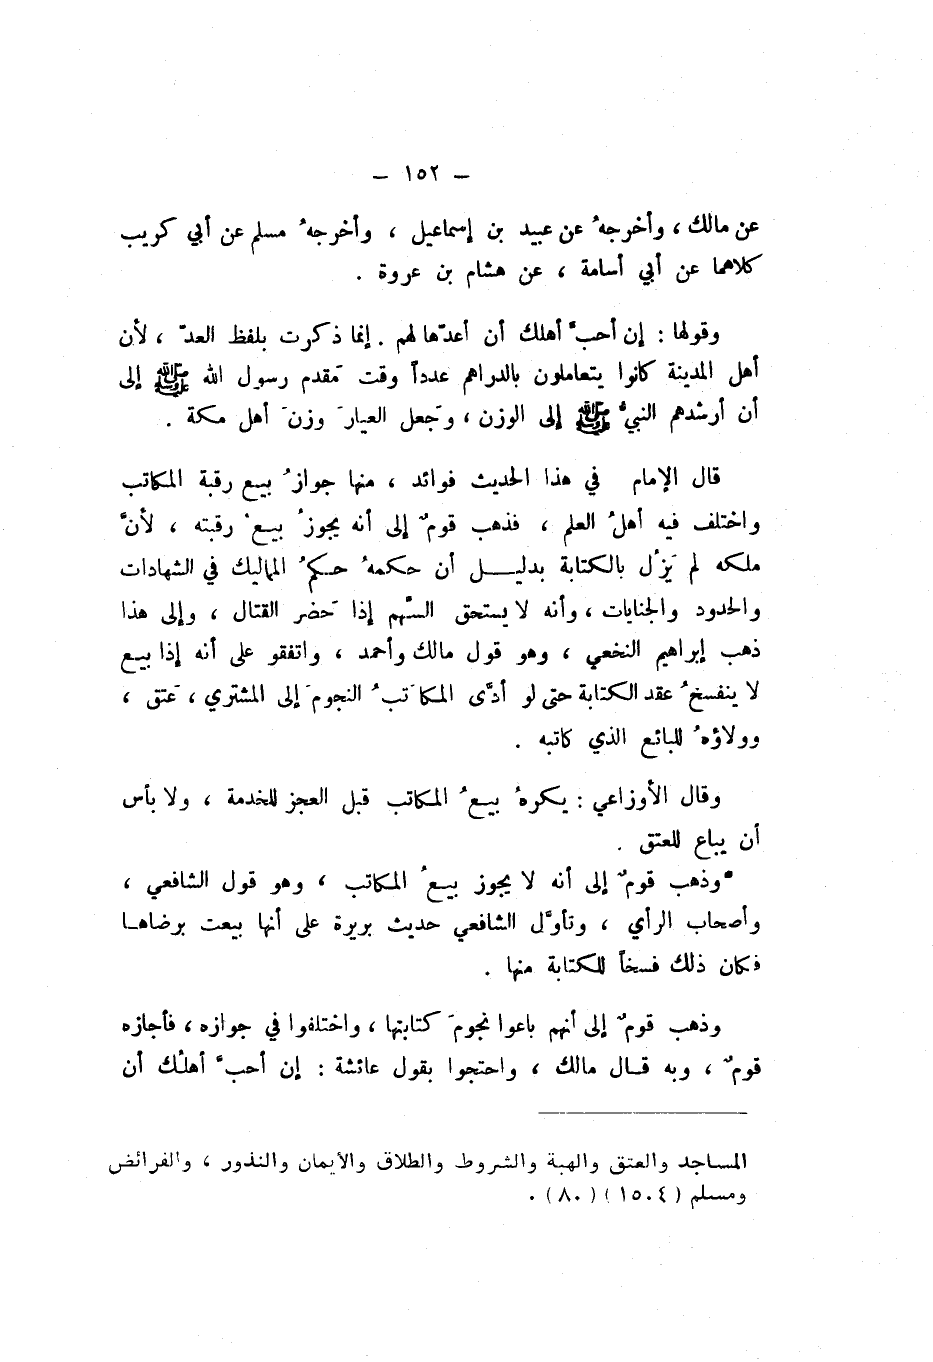 – ١٥٢ –
عن مالك ، وأخرجهُ عن عبيد بن إسماعيل ، وأخرجهُ مسلم عن أبي كريب
كلاهما عن أبي أسامة ، عن هشام بن عروة .
وقولها : إن أحبَّ أهلك أن أعدّها لهم . إنما ذكرت بلفظ العدّ ، لأن
أهل المدينة كانوا يتعاملون بالدراهم عدداً وقت مَقدم رسول الله ﷺ إلى
أن أرشدهم النبيُّ ﷺ إلى الوزن ، وَجعل العيارَ وزنَ أهل مكة .
قال الإمام في هذا الحديث فوائد ، منها جوازُ بيع رقبة المكاتب
واختلف فيه أهلُ العلم ، فذهب قومٌ إلى أنه يجوزُ بيعُ رقبته ، لأنَّ
ملكه لم يَزُل بالكتابة بدليــل أن حكمهُ حـكمُ المماليك في الشهادات
والحدود والجنايات ، وأنه لا يستحق السَّهم إذا حَضر القتال ، وإلى هذا
ذهب إبراهيم النخعي ، وهو قول مالك وأحمد ، واتفقو على أنه إذا بيع
لا ينفسخُ عقد الكتابة حتى لو أدَّى المكاتَبُ النجومَ إلى المشتري ، عَتق ،
وولاؤهُ للبائع الذي كاتبه .
وقال الأوزاعي : يكرهُ بيعُ المكاتب قبل العجز للخدمة ، ولا بأس
أن يباع للعتق .
وذهب قومٌ إلى أنه لا يجوز بيعُ المكاتب ، وهو قول الشافعي ،
وأصحاب الرأي ، وتأوَّل الشافعي حديث بريرة على أنها بيعت برضاها
فكان ذلك فسخاً للكتابة منها .
وذهب قومٌ إلى أنهم باعوا نجومَ كتابتها ، واختلفوا في جوازه ، فأجازه
قومٌ ، وبه قــال مالك ، واحتجوا بقول عائشة : إن أحبَّ أهلُك أن
المساجد والعتق والهبة والشروط والطلاق والأيمان والنذور ، والفرائض
ومسلم ( ١٥٠٤ ) ( ٨٠ ) .